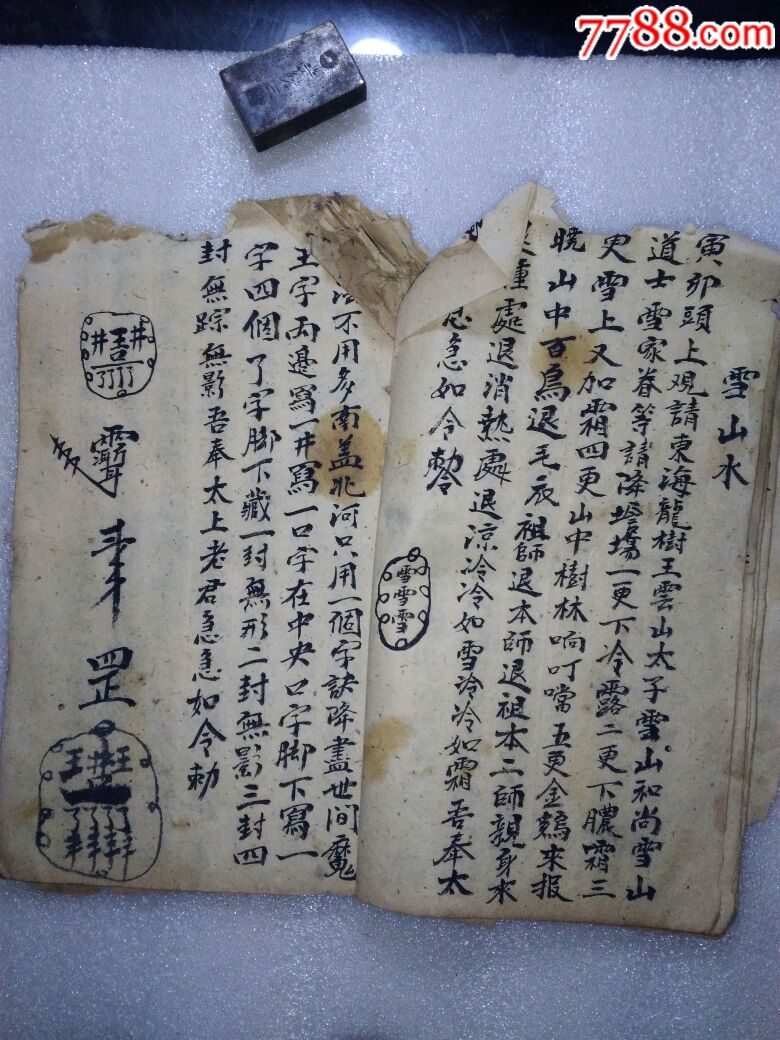 7788.com
雪山水
寅卯頭上观請東海龍樹王雲山太子雪山和尚雪山
道士雪家眷等請降壇場一更下冷露二更下膿霜三
更雪上又加霜四更山中樹林响叮噹五更金鷄來报
晓山中百鳥退毛衣祖師退本師退祖本二師親身來
重處退消熱處退涼冷冷如雪冷冷如霜吾奉太
急如令勅
雪雪雪
不用多南盖北河只用一個字訣降盡世間魔
王字兩邊寫一井寫一口字在中央口字脚下寫一
字四個了字脚下藏一封無形二封無影三封四
封無踪無影吾奉太上老君急急如令勅
井吾井
了了了了
罡
王井王